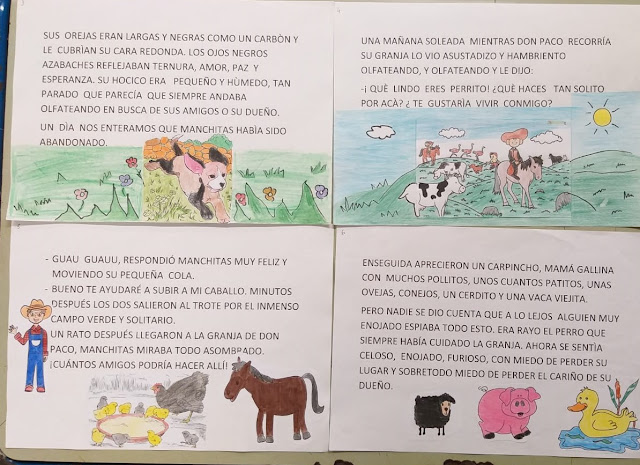 SUS OREJAS ERAN LARGAS Y NEGRAS COMO UN CARBÒN Y
LE CUBRÌAN SU CARA REDONDA. LOS OJOS NEGROS
AZABACHES REFLEJABAN TERNURA, AMOR, PAZ Y
ESPERANZA. SU HOCICO ERA PEQUEÑO Y HÙMEDO, TAN
PARADO QUE PARECÍA QUE SIEMPRE ANDABA
OLFATEANDO EN BUSCA DE SUS AMIGOS O SU DUEÑO.
UN DÌA NOS ENTERAMOS QUE MANCHITAS HABÌA SIDO
ABANDONADO.
UNA MAÑANA SOLEADA MIENTRAS DON PACO RECORRÍA
SU GRANJA LO VIO ASUSTADIZO Y HAMBRIENTO
OLFATEANDO, Y OLFATEANDO Y LE DIJO:
-¡ QUÈ LINDO ERES PERRITO! ¿QUÈ HACES TAN SOLITO
POR ACÀ? ¿ TE GUSTARÌA VIVIR CONMIGO?
- GUAU GUAUU, RESPONDIÓ MANCHITAS MUY FELIZ Y
MOVIENDO SU PEQUEÑA COLA.
- BUENO TE AYUDARÉ A SUBIR A MI CABALLO. MINUTOS
DESPUÉS LOS DOS SALIERON AL TROTE POR EL INMENSO
CAMPO VERDE Y SOLITARIO.
UN RATO DESPUÉS LLEGARON A LA GRANJA DE DON
PACO, MANCHITAS MIRABA TODO ASOMBRADO.
¡CUÁNTOS AMIGOS PODRÍA HACER ALLÍ!
ENSEGUIDA APRECIERON UN CARPINCHO, MAMÁ GALLINA
CON MUCHOS POLLITOS, UNOS CUANTOS PATITOS, UNAS
OVEJAS, CONEJOS, UN CERDITO Y UNA VACA VIEJITA.
PERO NADIE SE DIO CUENTA QUE A LO LEJOS ALGUIEN MUY
ENOJADO ESPIABA TODO ESTO. ERA RAYO EL PERRO QUE
SIEMPRE HABÍA CUIDADO LA GRANJA. AHORA SE SENTÌA
CELOSO, ENOJADO, FURIOSO, CON MIEDO DE PERDER SU
LUGAR Y SOBRETODO MIEDO DE PERDER EL CARIÑO DE SU
DUEÑO.